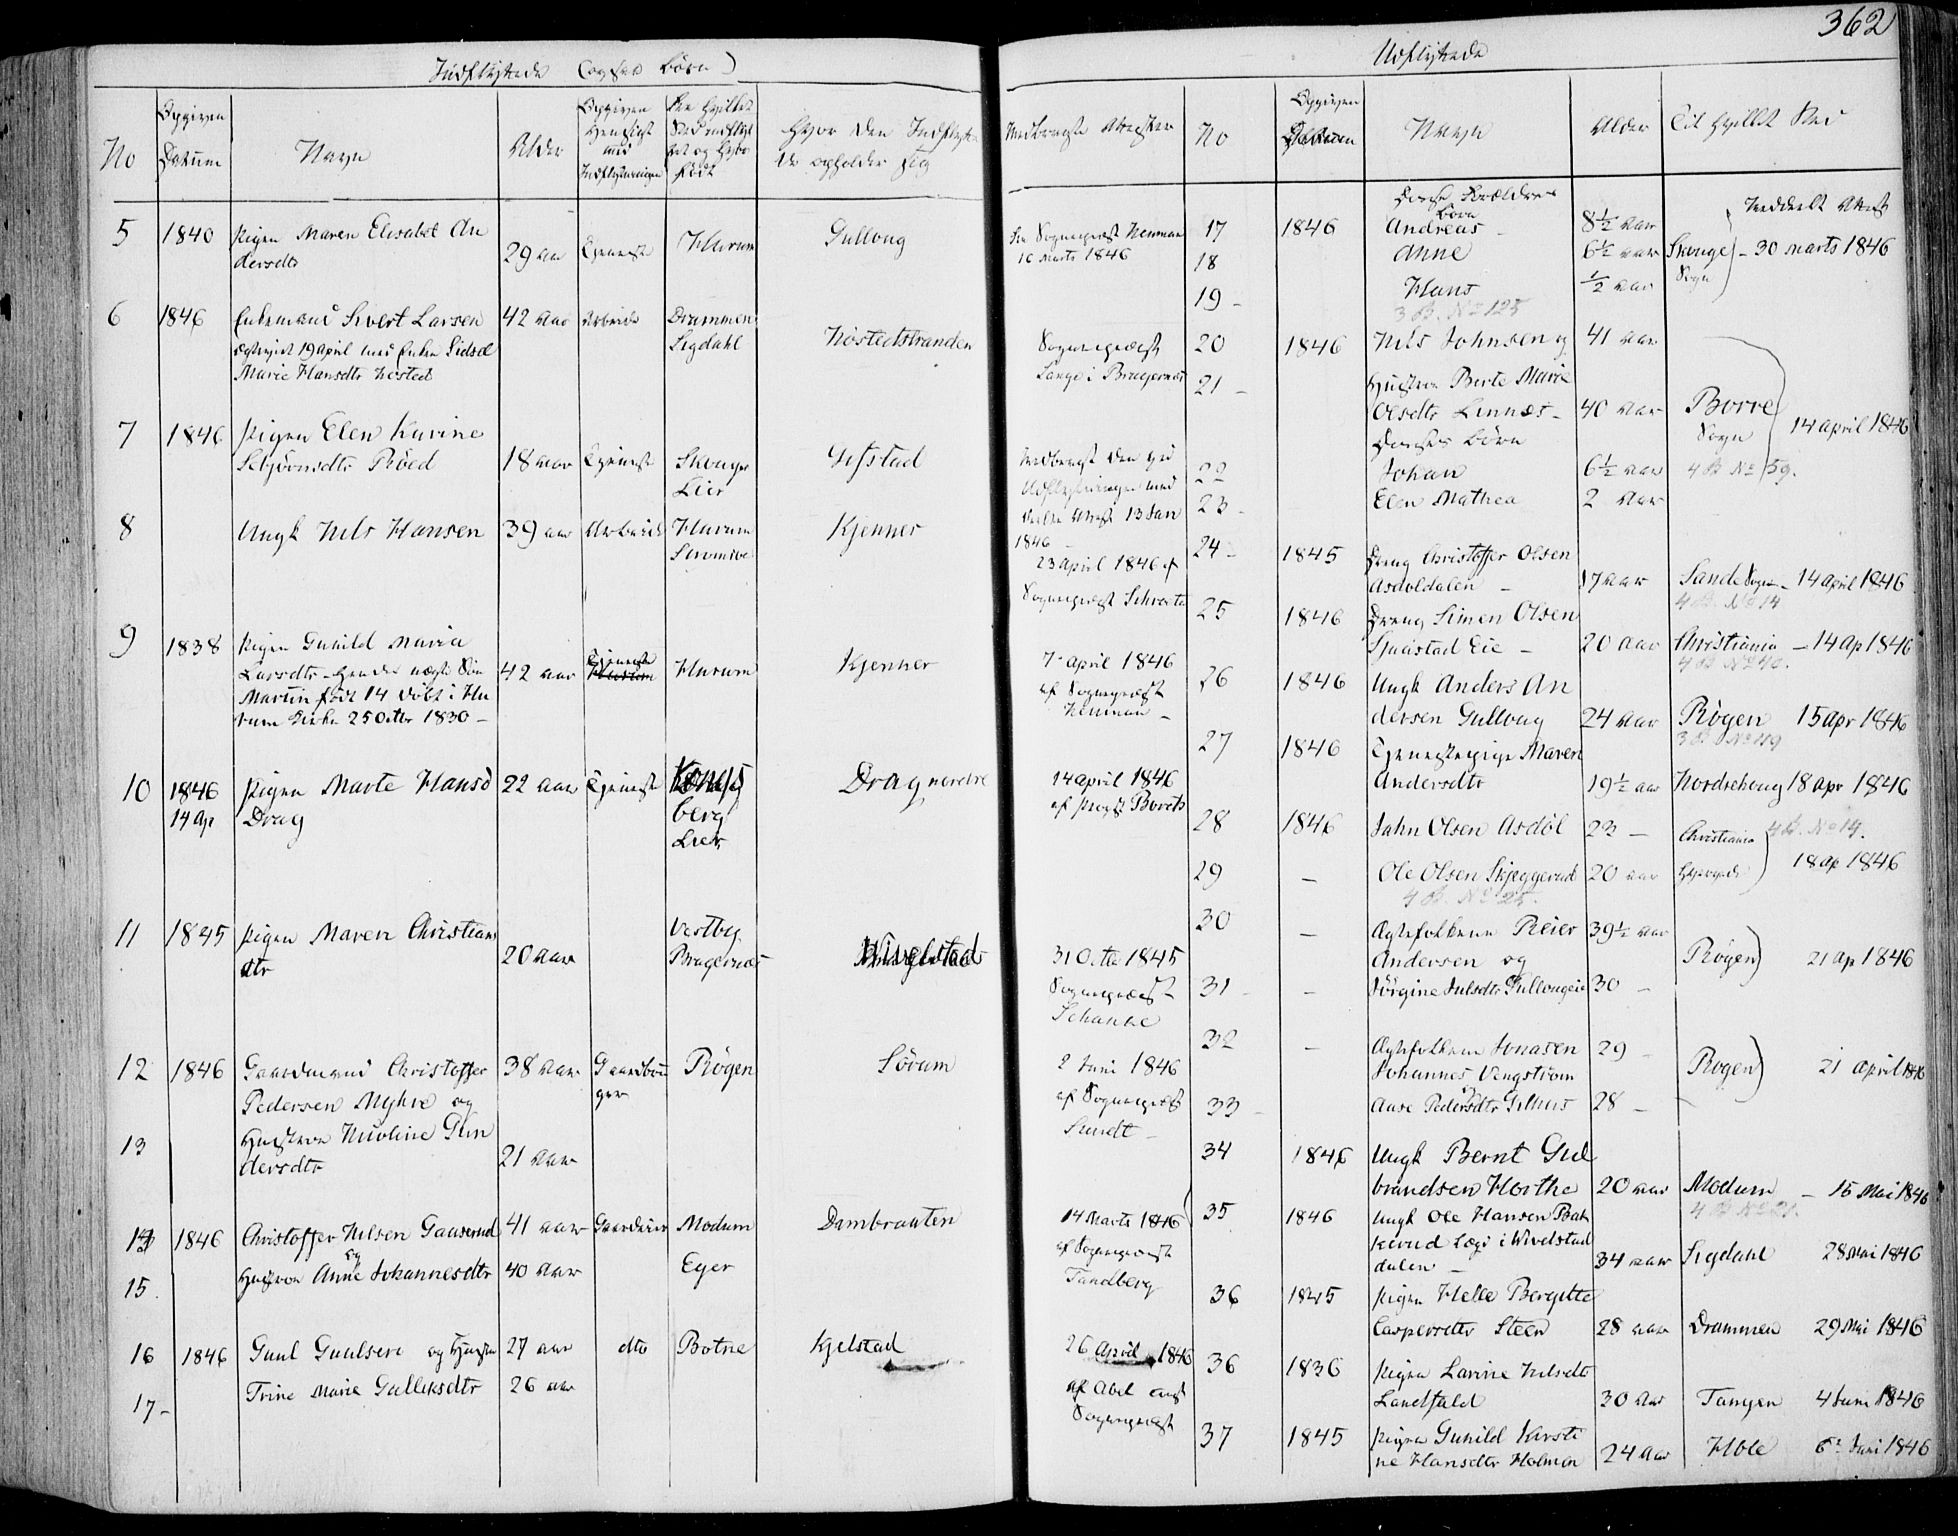 362
Indflyttede (ogsaa Børn)
No
Opgiven Datum
Navn
Alder
Opgiven Hensigt med Indflytningen
Fra hvilket Sted indflyttet og hvor født
Hvor den Indflyttede opholder sig
Medbragte Attester
5 1840 Pigen Maren Elisabet An
dersdtr 29 aar Tjeneste Hurum Gulloug
Fra Sogneprest Neuman
10 Marts 1846
6 1846 Enkemand Sivert Larsen 42 aar Arbeide Drammen
Sigdahl Nøstedstranden
ægteviet 19 April med Enken Sidsel
Marie Hansdtr Nøsted
Sogneprest
Lange i Bragernæs
7 1846 Pigen Elen Karine
Sebjørnsdtr Röed 18 aar Tjeneste Skouger
Lier Gifstad
Medbragt den ved
Udflytningen med
deelte Attest 13 Jan
1846
8 Ungk Nils Hansen 39 aar Arbeide Hurum
Strømsøe Kjenner
23 April 1846 af
Sogneprest Schwartz
9 1838 Pigen Gunild Maria
Larsdtr - Hendes uægte Søn 42 aar Tjeneste Hurum Kjenner
Martin født 14 døbt i Hu
rum Kirke 25 Octbr 1830 -
7 April 1846
af Sogneprest
Neuman -
10 1846 Pigen Marte Hansd 22 aar Tjeneste Kongs
14 Ap Drag berg
Lier Drag nordre
14 April 1846
af Prost Borch
11 1845 Pigen Maren Christians
dtr 20 aar Vestby
Bragernæs Wivelstad
31 Octbr 1845
Sogneprest
Schanke
12 1846 Gaardmand Christoffer 38 aar Gaardbru
ger Røgen Sørum
Pedersen Myhre og
13 Hustrue Nicoline Gun
dersdtr 21 aar
2 Juni 1846
af Sogneprest
Sundt -
14 1846 Christoffer Nilsen Gauserud 41 aar Gaardeier Modum Dambraaten
og
15. Hustrue Anne Johannesdtr 40 aar Eger
14 Marts 1846
af Sogneprest
Tandberg
16 1846 Guul Guulsen og Hustru 27 aar dto Botne Kjelstad
17- Trine Marie Gulliksdtr 26 aar
26 April 1846
af Abel
Sogneprest
Udflyttede
No
Opgiven
Navn
Alder
Til hvilket Sted
Disse Forældres
Børn
Meddeelt Attest
17 1846 Andreas - 8½ aar
18 Anne 6½ aar Skouger
Sogn - 30 Marts 1846
19 - Hans ½ aar
3 B. No 125
20 1846 Nils Johnsen og 41 aar
21 - Hustrue Berte Marie
Olsdtr Linnes - 40 aar Borre
Sogn 14 April 1846
Deres Børn
4 B No 59.
22 Johan 6½ aar
23 - Elen Mathea 2 aar
24 - 1845 Dreng Christoffer Olsen
Asdoldalen - 17 aar Sande Sogn - 14 April 1846
4 B. No 14
25 1846 Dreng Simen Olsen
Sjaastad Eie - 20 aar Christiania - 14 Ap 1846
26 1846 Ungk Anders An
dersen Gulloug 24 aar Røgen 15 Apr 1846
3 B No 119
27 1846 Tjenestepige Maren
Andersdtr 19½ aar Nordrehoug 18 Apr 1846
28 1846 Jahn Olsen Asdøl 23 - Christiania
4 B. No 14.
18 Ap 1846
29 - Ole Olsen Skjeggerud 20 aar
4 B. No 25.
30 - Ægtefolkene Reier 39½ aar
Andersen og Røgen 21 Ap 1846
31 - - Jørgine Julsdtr Gullougeie 30 -
32 - Ægtefolkene Jonasen 29 -
Johannes Vengstrom Røgen 21 April 1846
og
33 - Anse Pedersdtr Gilhus 28 -
34 1846 Ungk Bernt Gul
brandsen Horthe 20 aar Modum - 15 Mai 1846
35 1846 Ungk Ole Hansen Bak
kerud Lægd i Wivelstad
dalen - 34 aar Sigdahl 28 Mai 1846
36 1845 Pigen Helle Bergitte
Caspersdtr Steen 28 aar Drammen 29 Mai 1846
36 1836 Pigen Lavine Nilsdtr
Landfald 30 aar Tangen 4 Juni 1846
37 1845 Pigen Gunild Kirsti
ne Hansdtr Holmen 24 aar Hole 6 Juni 1846